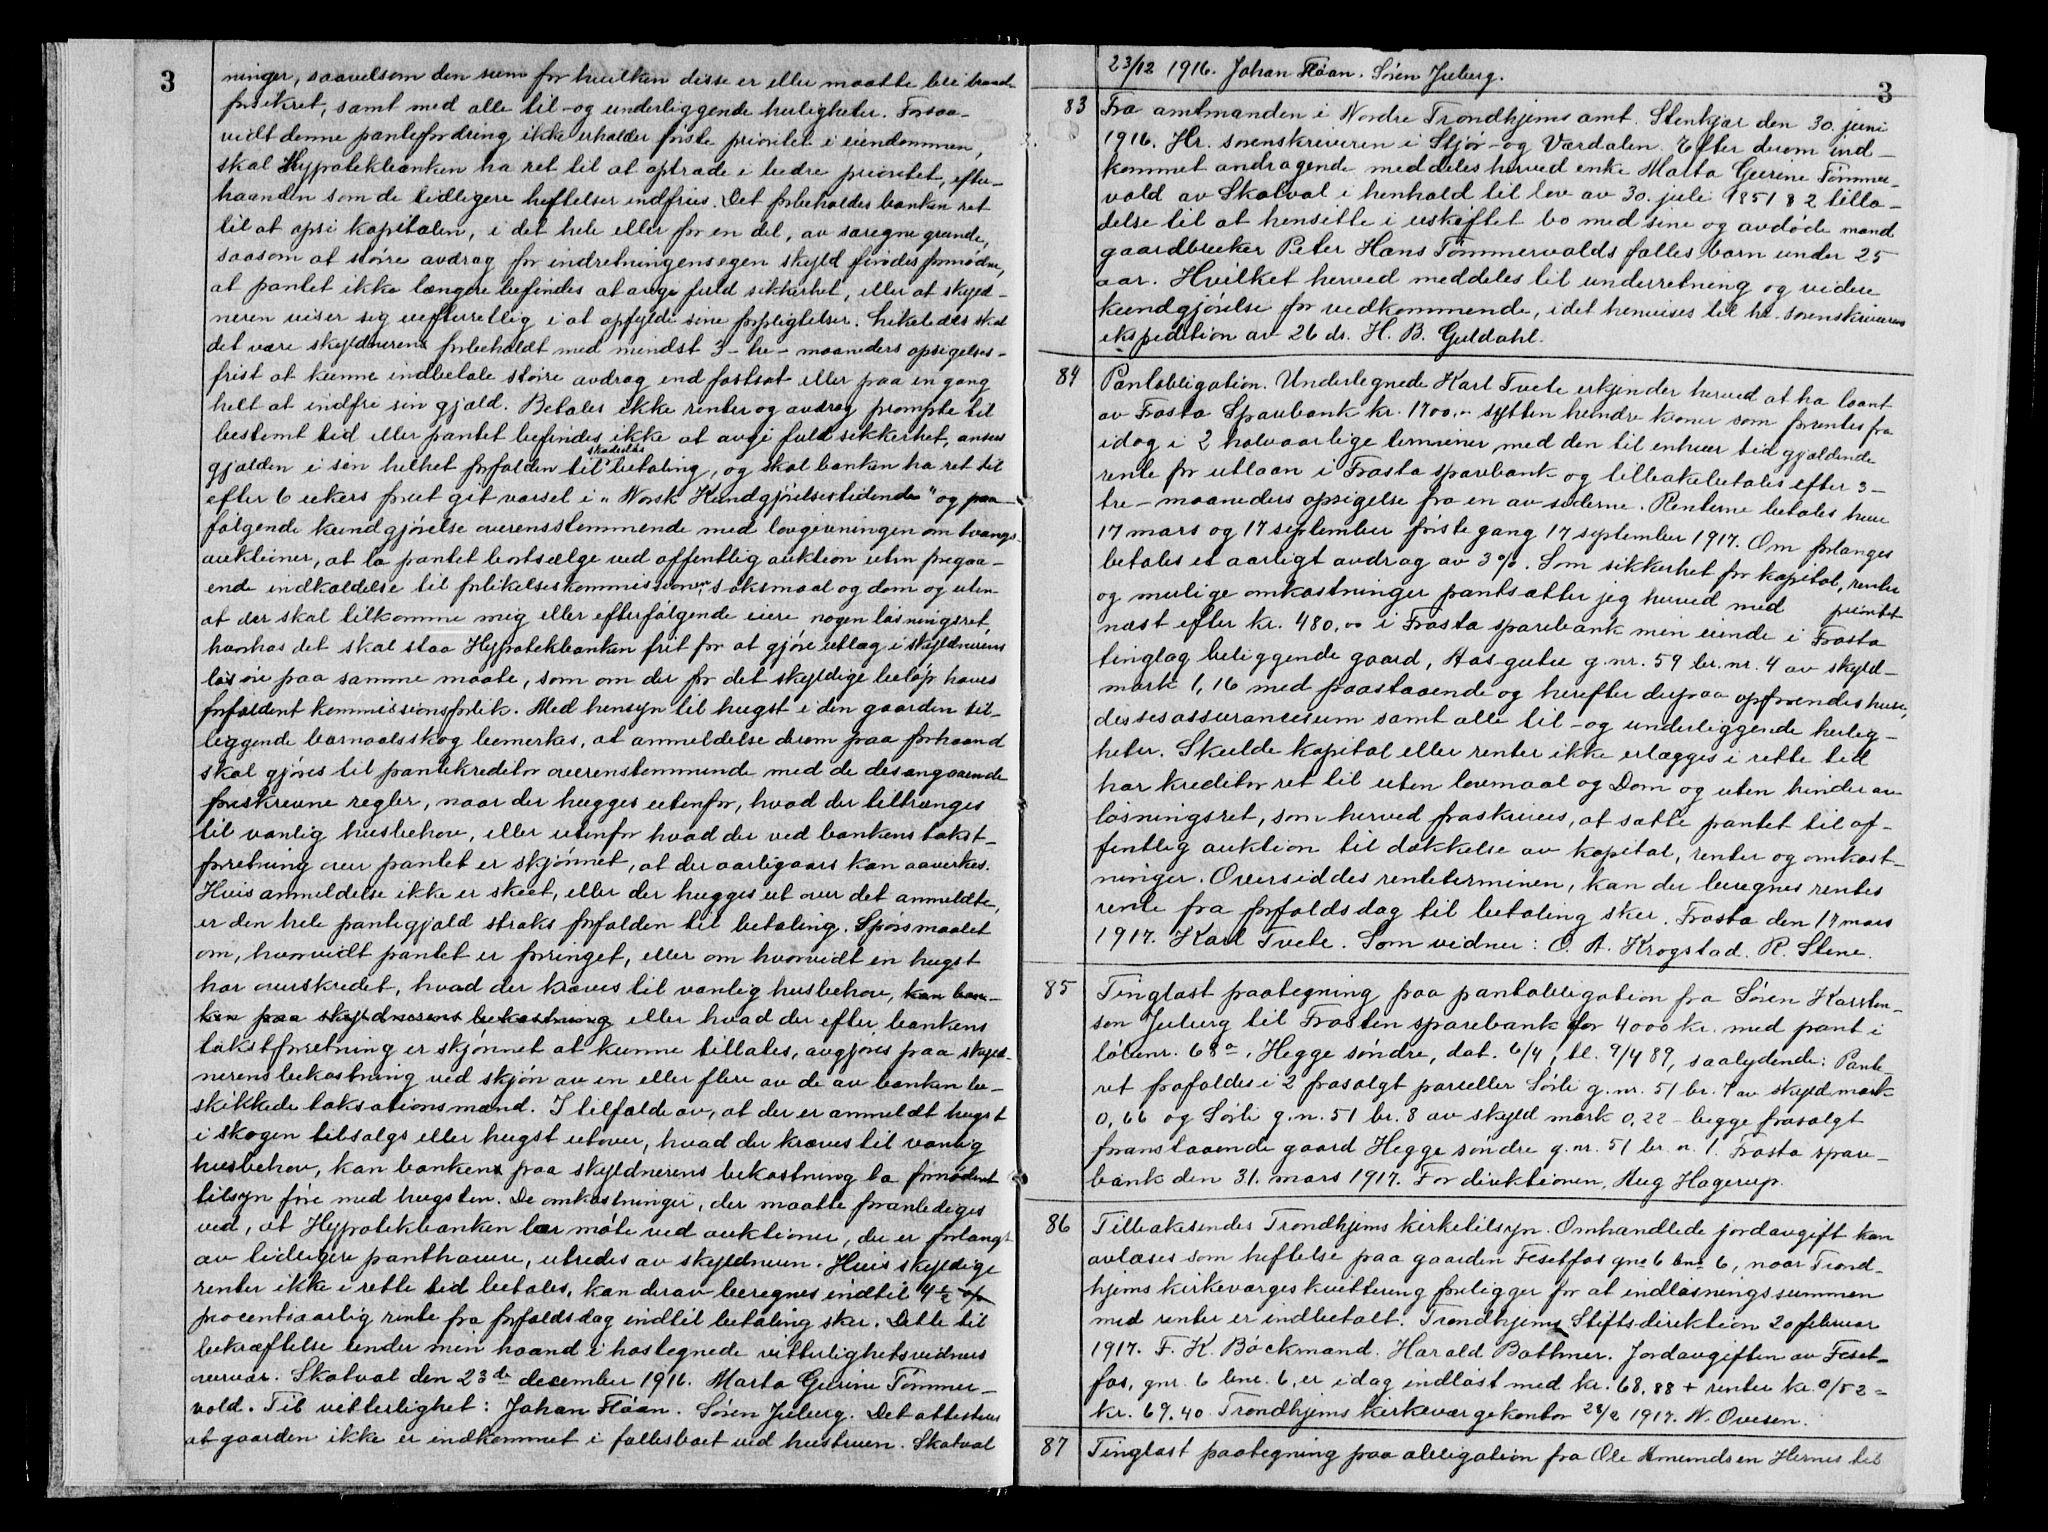 3
ninger, saavelsom den sum for hvilken disse er eller maatte bli brand-
forsikret, samt med alle til- og underliggende herligheter. Forsaa-
vidt denne pantefordring ikke erholder første prioritet i eiendommen,
skal Hypotekbanken ha ret til at optræde i bedre prioritet, efter-
haanden som de tidligere heftelser indfries. Det forbeholdes banken ret
til at opsi kapitalen, i det hele eller for en del, av særegne grunde,
saasom at større avdrag for indretningens egen skyld findes fornødne,
at pantet ikke længere befindes at avgi fuld sikkerhet, eller at skyld-
neren viser sig uefterrettelig i at opfylde sine forpligtelser. Likeledes skal
det være skyldneren forbeholdt med mindst 3 - tre - maaneders opsigelses-
frist at kunne indbetale større avdrag end fastsat eller paa en gang
helt at indfri sin gjæld. Betales ikke renter og avdrag prompte til
bestemt tid eller pantet befindes ikke at avgi fuld sikkerhet, ansees
gjælden i sin helhet forfalden til skadesløs betaling, og skal banken ha ret til
efter 6 ukers forut git varsel i "Norsk Kundgjørelsestidende" og paa-
følgende kundgjørelse overensstemmende med lovgivningen om tvangs-
auktioner, at la pantet bortsælge ved offentlig auktion uten foregaa-
ende indkaldelse til forlikelseskommissionen, søksmaal og dom og uten
at der skal tilkomme mig eller efterfølgende eiere nogen løsningsret,
hvorhos det skal staa Hypotekbanken frit for at gjøre utlæg i skyldnerens
løsøre paa samme maate, som om der for det skyldige beløp haves
forfaldent kommissionsforlik. Med hensyn til hugst i den gaarden til-
liggende barnaalsskog bemerkes, at anmeldelse derom paa forhaand
skal gjøres til pantekreditor overensstemmende med de desangaaende
foreskrevne regler, naar der hugges utenfor, hvad der tiltrænges
til vanlig husbehov, eller utenfor hvad der ved bankens takst-
forretning over pantet er skjønnet, at der aarligaars kan aaverkes.
Hvis anmeldelse ikke er skeet, eller der hugges ut over det anmeldte,
er den hele pantegjæld straks forfalden til betaling. Spørsmaalet
om, hvorvidt pantet er forringet, eller om hvorvidt en hugst
har overskredet, hvad der kræves til vanlig husbehov, kan ban-
ken paa skyldnerens bekostning eller hvad der efter bankens
takstforretning er skjønnet at kunne tillates, avgjøres paa skyld-
nerens bekostning ved skjøn av en eller flere av de av banken be-
skikkede taksationsmænd. I tilfælde av, at der er anmeldt hugst
i skogen tilsalgs eller hugst utover, hvad der kræves til vanlig
husbehov, kan banken paa skyldnerens bekostning la fornødent
tilsyn føre med hugsten. De omkostninger, der maatte foranlediges
ved, at Hypotekbanken lar møte ved auktioner, der er forlangt
av tidligere panthavere, utredes av skyldneren. Hvis skyldige
renter ikke i rette tid betales, kan derav beregnes indtil 4½ %
procentsaarlig rente fra forfaldsdag indtil betaling sker. Dette til
bekræftelse under min haand i hostegnede vitterlighetsvidners
overvær. Skatval den 23de december 1916. Marta Gurine Tømmer-
vold. Til vitterlighet: Johan Fløan. Søren Juberg. Det attesteres
at gaarden ikke er indkommet i fællesboet ved hustruen. Skatval
3
23/12 1916. Johan Fløan. Søren Juberg.
83 Fra amtmanden i Nordre Trondhjems amt. Stenkjær den 30. juni
1916. Hr. sorenskriveren i Stjør- og Værdalen. Efter derom ind-
kommet andragende meddeles herved enke Marta Gurine Tømmer-
vold av Skatval i henhold til lov av 30. juli 1851 § 2 tilla-
delse til at hensitte i uskiftet bo med sine og avdøde mand
gaardbruker Peter Hans Tømmervolds fælles barn under 25
aar. Hvilket herved meddeles til underretning og videre
kundgjørelse for vedkommende, idet henvises til hr. sorenskriverens
ekspedition av 26 ds. H. B. Guldahl.
84 Pantobligation. Undertegnede Karl Tvete erkjender herved at ha laant
av Frosta Sparebank kr. 1700,- sytten hundre kroner som forrentes fra
idag i 2 halvaarlige terminer med den til enhver tid gjældende
rente for utlaan i Frosta sparebank og tilbakebetales efter 3 -
tre - maaneders opsigelse fra en av siderne. Renterne betales hver
17 mars og 17 september første gang 17 september 1917. Om forlanges
betales et aarligt avdrag av 3%. Som sikkerhet for kapital, renter
og mulige omkostninger pantsætter jeg herved med prioritet
næst efter kr. 480,00 i Frosta sparebank min eiende i Frosta
tinglag beliggende gaard, Aas-gutu g.nr. 59 br.nr. 4 av skyld-
mark 1,16 med paastaaende og herefter derpaa opførendes huse,
dessesassurancesum samt alle til- og underliggende herlig-
heter. Skulde kapital eller renter ikke erlægges i rette tid
har kreditor ret til uten lovmaal og Dom og uten hinder av
løsningsret, som herved fraskrives, at sætte pantet til of-
fentlig auktion til dækkelse av kapital, renter og omkost-
ninger. Oversiddes renteterminen, kan der beregnes rentes
rente fra forfaldsdag til betaling sker. Frosta den 17 mars
1917. Karl Tvete. Som vidner: O. A. Krogstad. R. Stene.
85 Tinglæst paategning paa pantobligation fra Søren Karsten-
sen Juberg til Frosten sparebank for 4000 kr. med pant i
løbenr. 68a, Hegge søndre, dat. 6/4, tl. 9/4 89, saalydende: Pante-
ret frafaldes i 2 frasolgt parceller Sørli g.nr. 51 br. 7 av skyld mark
0,66 og Sørli g.n. 51 br. 8 av skyld mark 0,22 - begge frasolgt
foranstaaende gaard Hegge søndre g.nr. 51 br. n. 1. Frosta spare-
bank den 31. mars 1917. For direktionen, Aug Hagerup.
86 Tilbakesendes Trondhjems kirketilsyn. Omhandlede jordavgift kan
avlæses som heftelse paa gaarden Fesetfos gnr. 6 bnr. 6, naar Trond-
hjems kirkeværges kvittering foreligger for at indløsningssummen
med renter er indbetalt. Trondhjems Stiftsdirektion 20 februar
1917. F. K. Bøckmand. Harald Bothner. Jordavgiften av Feset-
fos, gnr. 6 bnr. 6, er idag indløst med kr. 68,88 + renter kr. 0/52 =
kr. 69.40 Trondhjems kirkeværgekontor 28/2 1917. N. Ovesen.
87 Tinglæst paategning paa obligation fra Ole Amundsen Hernes til